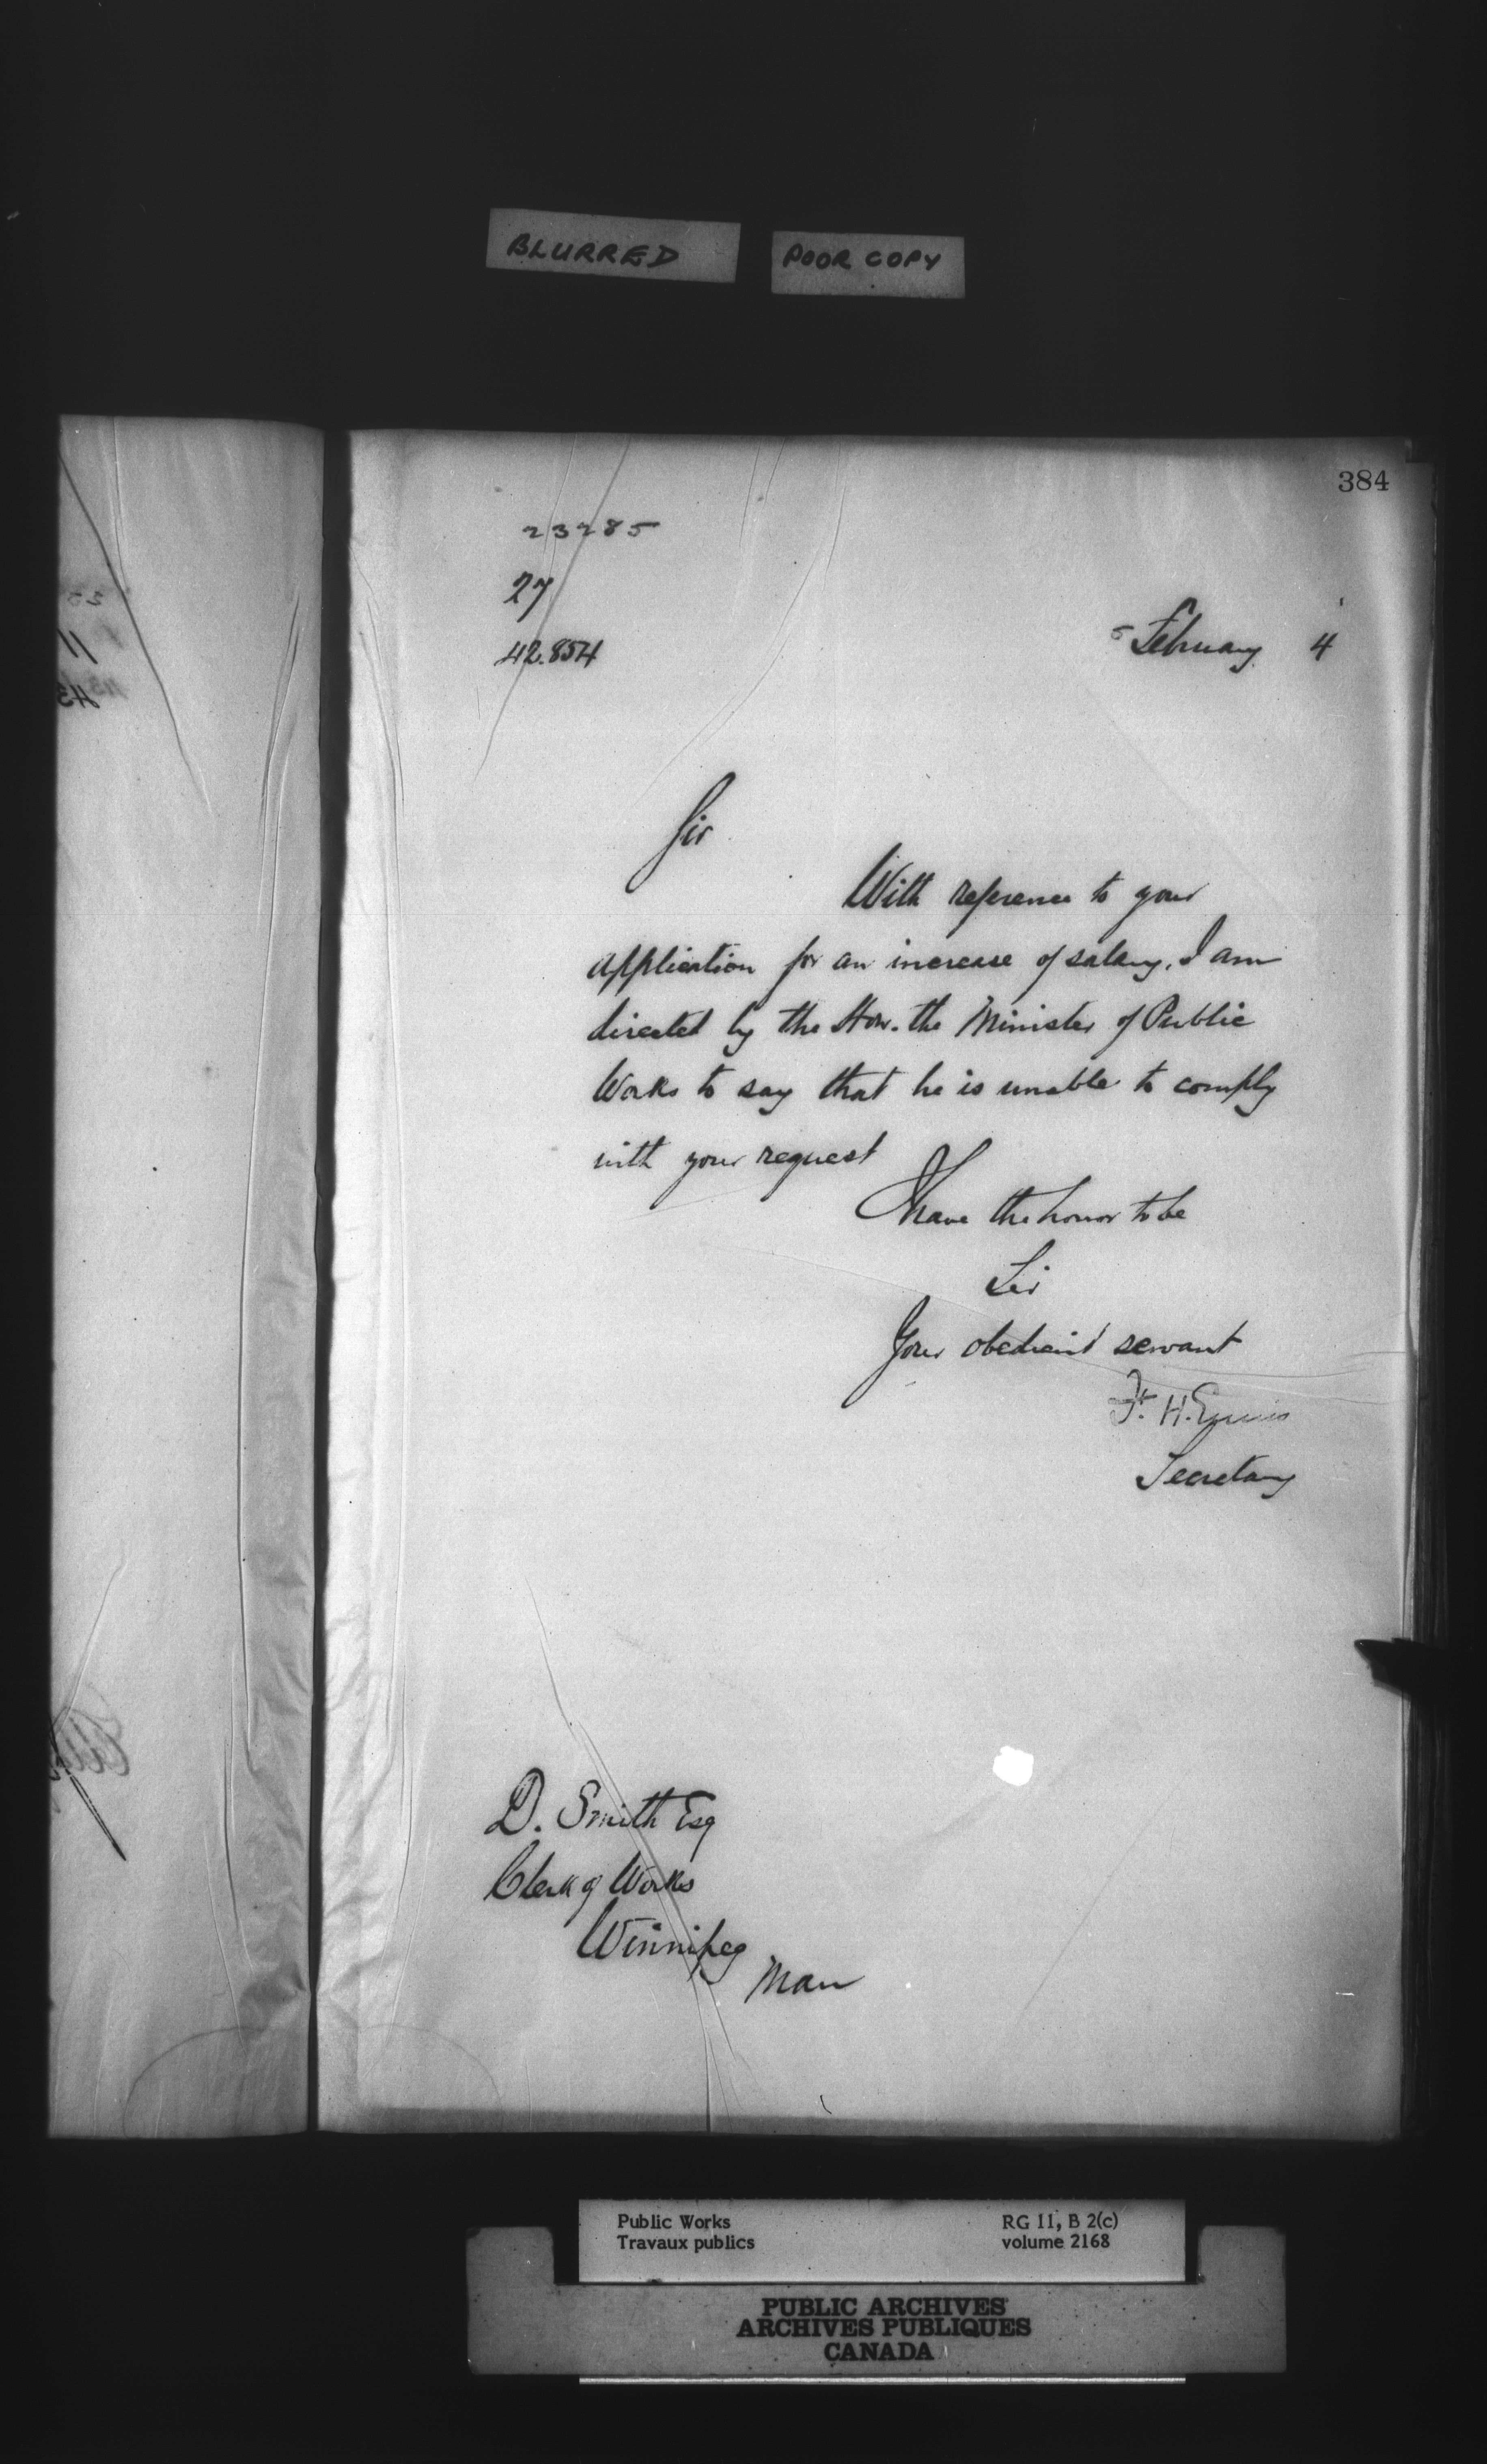 BLURRED
POOR COPY
384
23285
27
42.854
5 February 4
Sir
With reference to your
application for an increase of salary, I am
directed by the Hon. the Minister of Public
Works to say that he is unable to comply
with your request
I have the honor to be
Sir
Your obedient servant
F. H. Ennis
Secretary
D. Smith Esq
Clerk of Works
Winnipeg
Man
Public Works
Travaux publics
RG 11, B 2(c)
volume 2168
PUBLIC ARCHIVES
ARCHIVES PUBLIQUES
CANADA